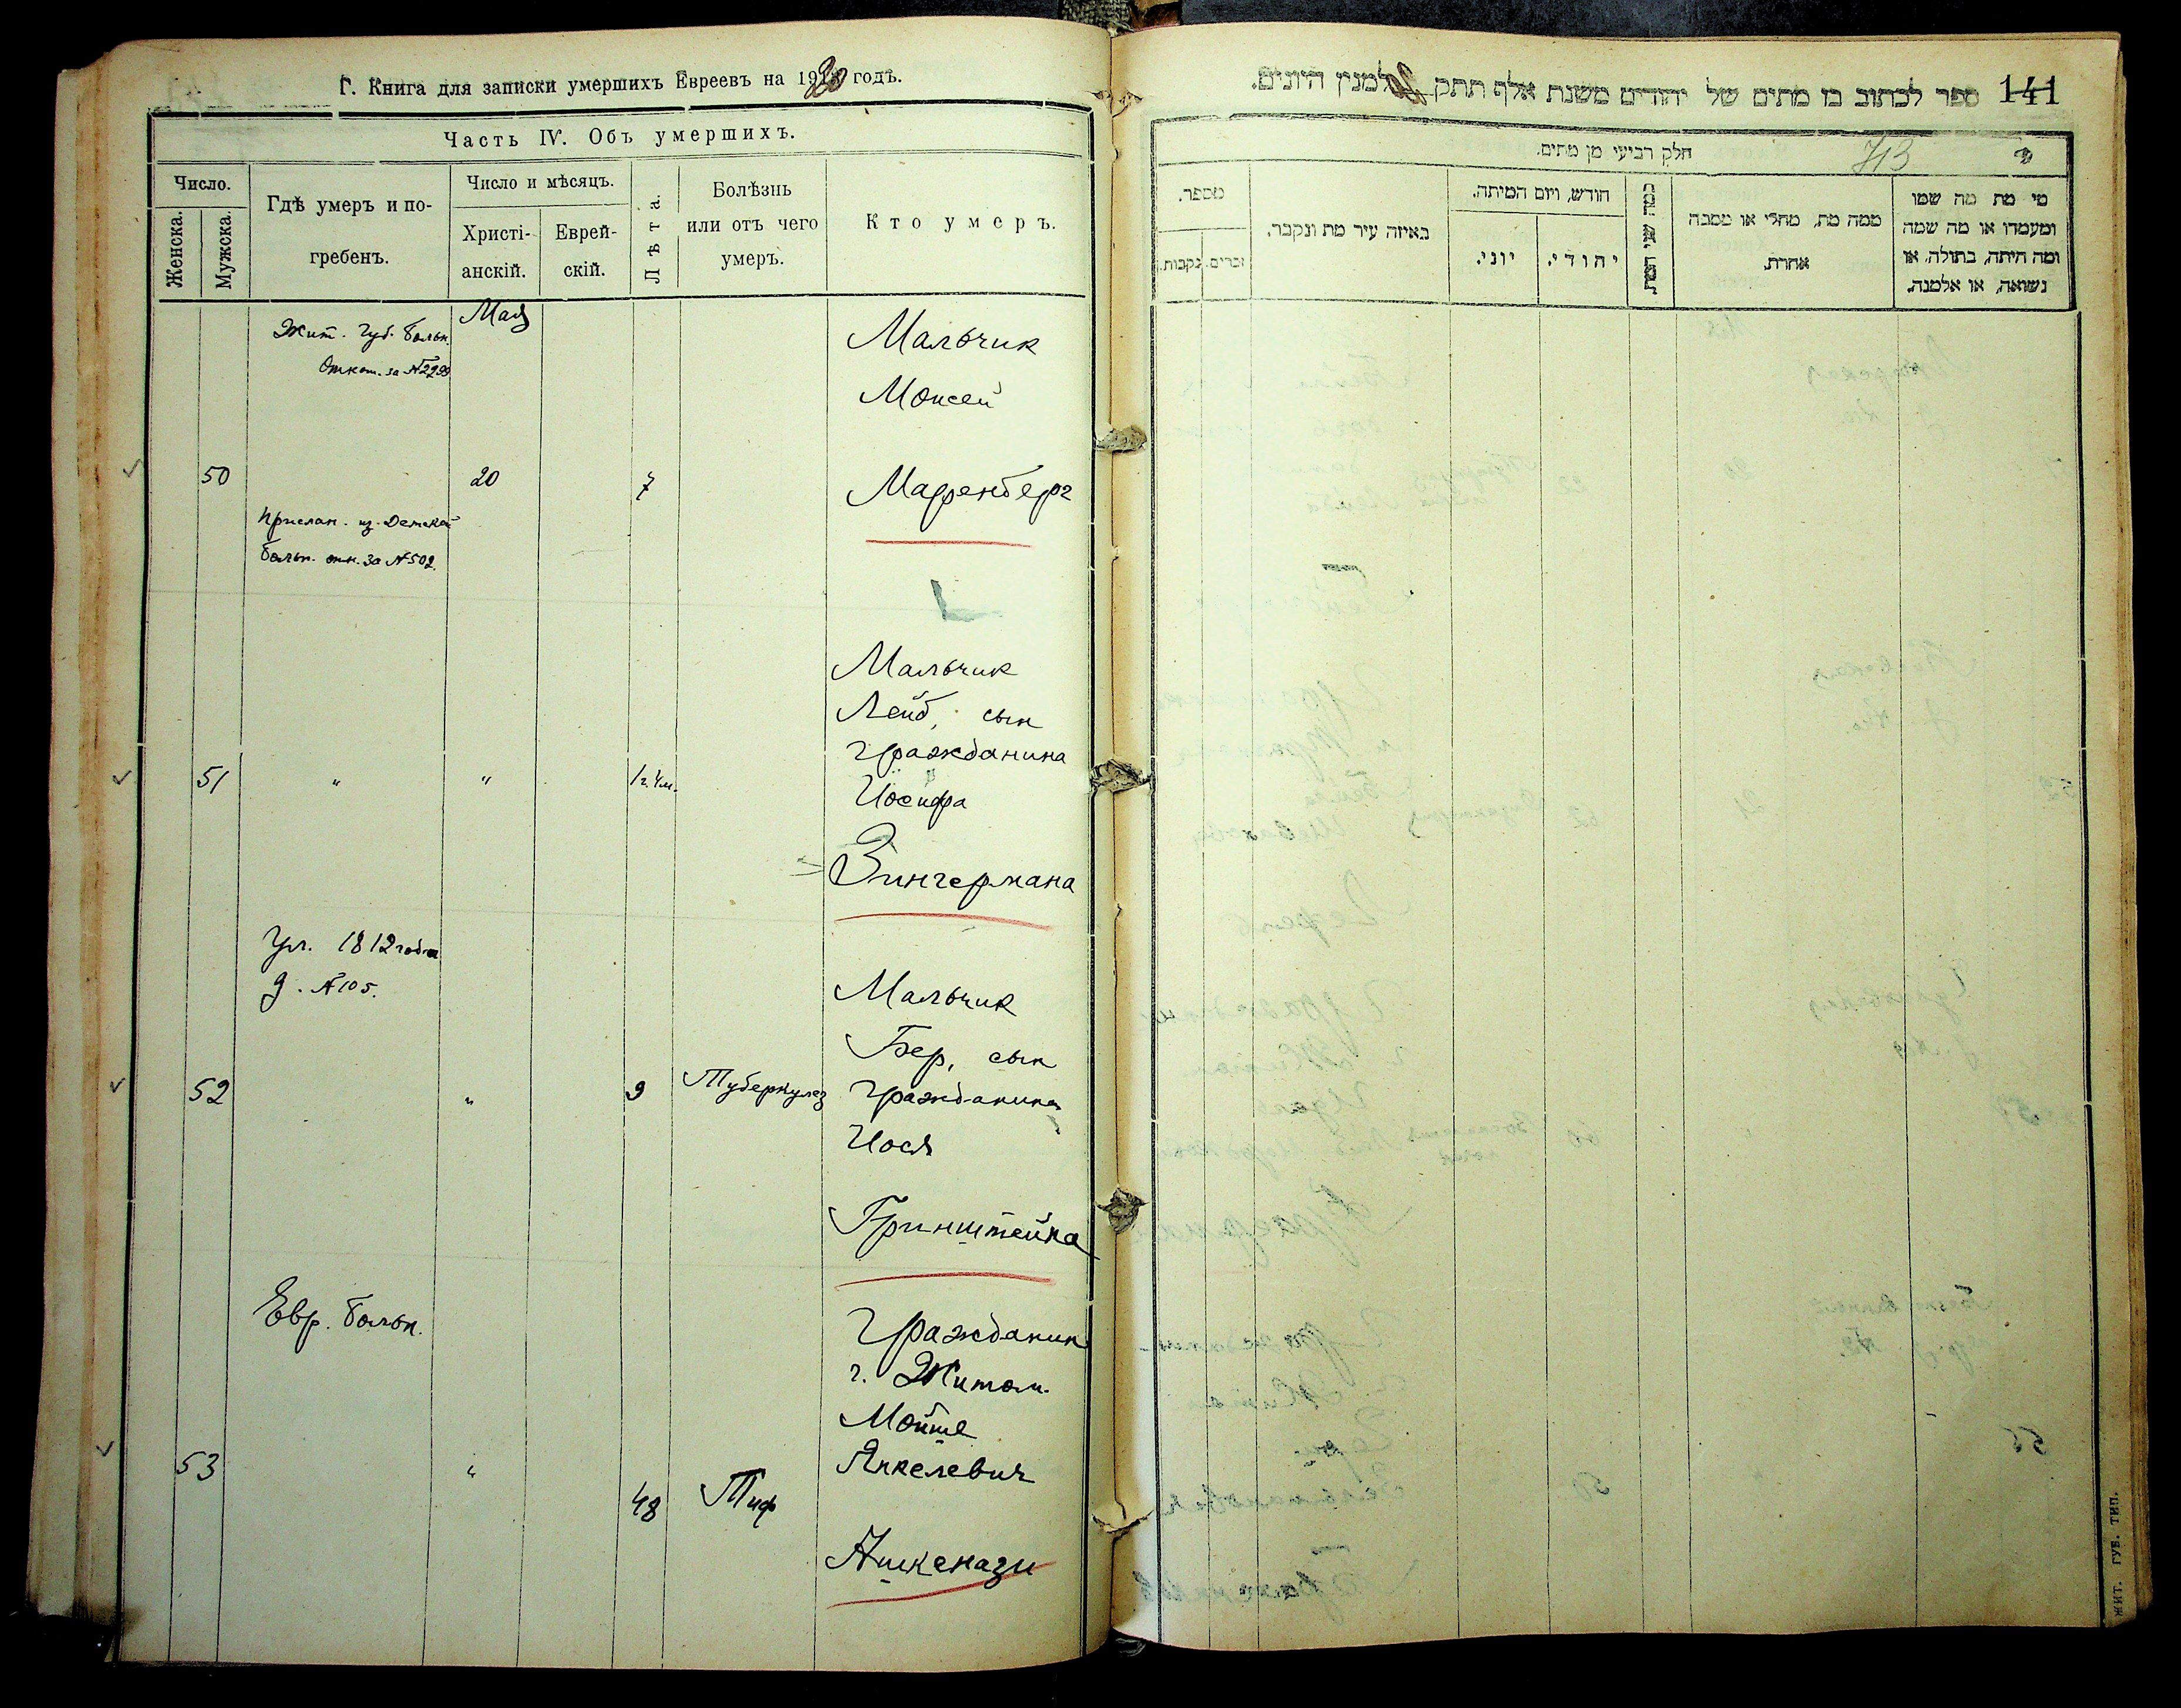 Г. Книга для записки умершихъ Евреевъ на 1920 годъ.
Часть IV. Объ умершихъ.
Число.
Женска.
Мужска.
Гдѣ умеръ и по-
гребенъ.
Число и мѣсяцъ.
Христі-
анскій.
Еврей-
скій.
Лѣта.
Болѣзнь
или отъ чего
умеръ.
Кто умеръ.
Мая
Жит. Губ. больн.
Отнош. за №2299
Мальчик
Моисей
50
20
7
Марренберг
Прислан. из Детской
больн. отн. за №502.
Мальчик
Лейб, сын
гражданина
51
"
"
1 г. 4 м.
Иосифа
Зингермана
Ул. 1812 года
д. №105.
Мальчик
Бер, сын
52
"
9
Туберкулез
гражданина
Иося
Гринштейна
Евр. больн.
Гражданин
г. Житом.
Мойше
53
"
48
Тиф
Янкелевич
Ашкенази
ספר לכתוב בו מתים של יהודים משנת אלף תתק למנין היונים.
141
חלק רביעי מן מתים.
713
מספר.
זכרים.
נקבות.
באיזה עיר מת ונקבר.
חודש, ויום המיתה.
יוני.
יהודי.
כמה שני המת
ממה מת, מחלי או מסבה
אחרת.
מי מת מה שמו
ומעמדו או מה שמה
ומה היתה, בתולה, או
נשואה, או אלמנה.
ЖИТ. ГУБ. ТИП.